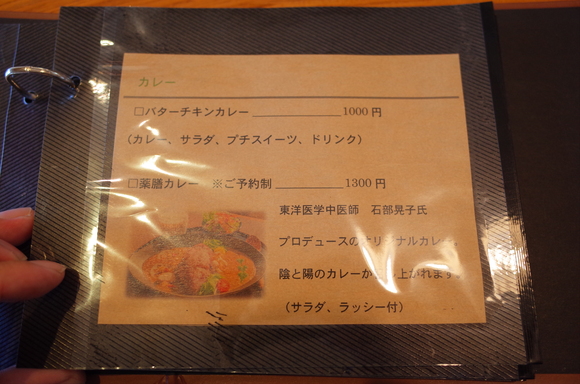 カレー
□バターチキンカレー＿＿＿＿＿＿＿1000 円
（カレー、サラダ、プチスイーツ、ドリンク）
□薬膳カレー　※ご予約制＿＿＿＿＿1300 円
東洋医学中医師　石部晃子氏
プロデュースのオリジナルカレー。
陰と陽のカレーから 上がれます。
（サラダ、ラッシー付）